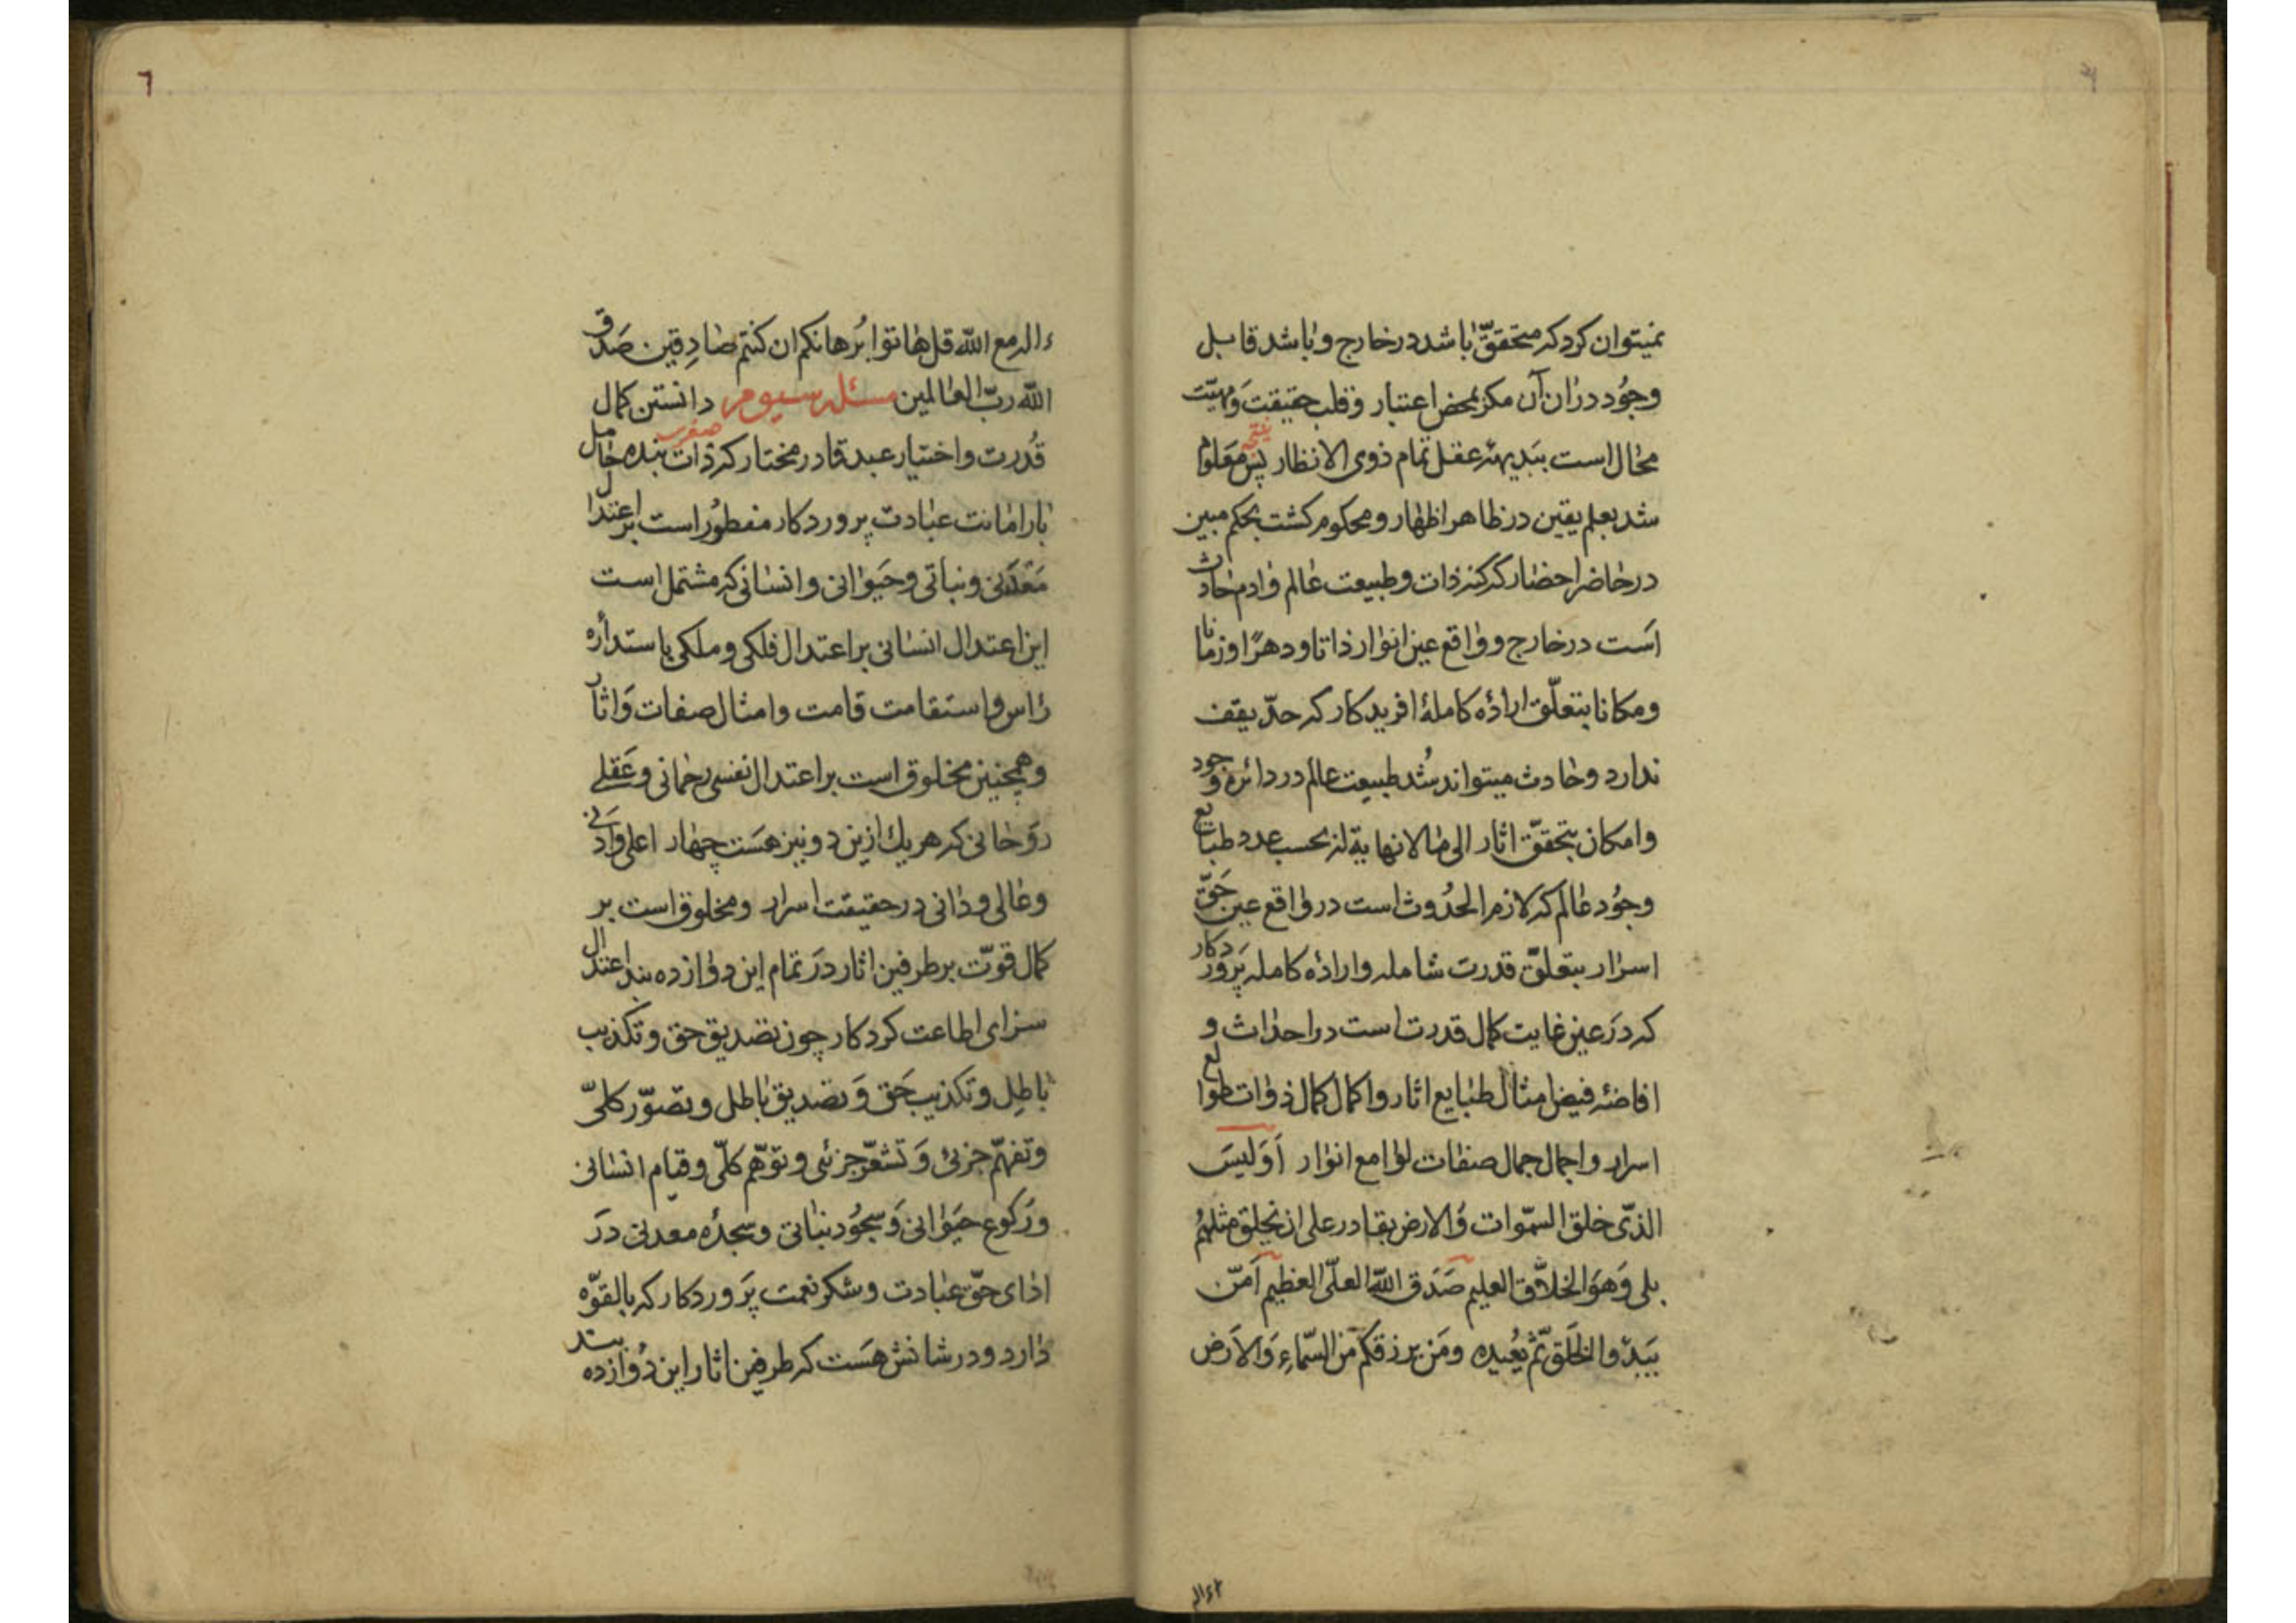 نمیتوان کرد که متحقق باشد در خارج و باشد قابل
وجُود در ان آن مکر بمحض اعتبار و قلب حقیقت وَ مهیّت
محال است ببَدیهٔه عقل تمام ذوی الانظار پس معلوم
نتیجه
شد بعلم یقین در ظاهر اظهار و محکوم کشت بحکم مبین
در حاضر احضار که کنه ذات و طبیعت عالم و ادم حادث
اَست در خارج و واقع عین انوار ذاتا و دهرًا و زمانا
و مکانا بتعلّق ارادهٔ کاملهٔ افریدکار که حدّ یقف
ندارد و حادث میتواند شُد طبیعت عالم در دائرهٔ وجود
و امکان بتحقّق اثار الی ما لا نهایة له بحسب عدد طبایع
وجُود عالم که لازم الحدُوث است در واقع عین حَقّ
اسرار بتعلّق قدرت شامله و ارادهٔ کامله پَروَردکار
که دَر عین غایت کمال قدرت است در احداث و
افاضهٔ فیض مثال طبایع اثار و اکمال کمال ذوات طوالع
اسرار و اجمال جمال صفات لوامع انوار اَوَلَیسَ
الذّی خلق السمّوات وَ الارض بقادر علی ان یخلق مثلهُم
بلی وَ هوَ الخلاّق العلیم صَدَق اللّه العلّی العظیم اَمّن
یَبدؤا الخَلق ثمّ یُعیده و مَن یرزقکم من السّماءِ وَ الاَرض
ءاله
٦
ءاله مع اللّه قل هاتوا بُرهانکم ان کنتم صادِقین صَدَق
اللّه ربّ العالمین مسئله سیوم دانستن کمال
قُدرت و اختیار عبد قادر مختار که ذات بنده حامل
صغری
بار امانت عبادت پروردکار مفطوُر است بر اعتدال
مَعْدَنی و نباتی و حَیَوانی و انسانی که مشتمل است
این اعتدال انسانی بر اعتدال فلکی و ملکی باستدارهٔ
راس و استقامت قامت و امثال صفات وَ اثار
و همچنین مخلوق است بر اعتدال نفسی رحمانی و عَقلی
روَحانی که هر یك ازین دو نیز هسَت چهار اعلی و ادَنی
و عالی و دانی در حقیقت اسرار و مخلوق است بر
کمال قوّت بر طرفین اثار دَر تمام این دوازده بند اعتدال
سزای اطاعت کردکار چون تصدیق حق و تکذیب
باطِل و تکذیب حَق وَ تصدیق باطل و تصوّر کلیّ
و تفهّم جزئی وَ تشعّر جزئی و توَهّم کلّی و قیام انسانی
و رُکوع حیَوانی وَ سجُود نباتی و سجدهٔ معدنی دَر
ادای حَقّ عبادت و شکر نعمت پَروردکار که بالقوّه
دارد و در شانش هسَت که طرفین اثار این دوازده بند